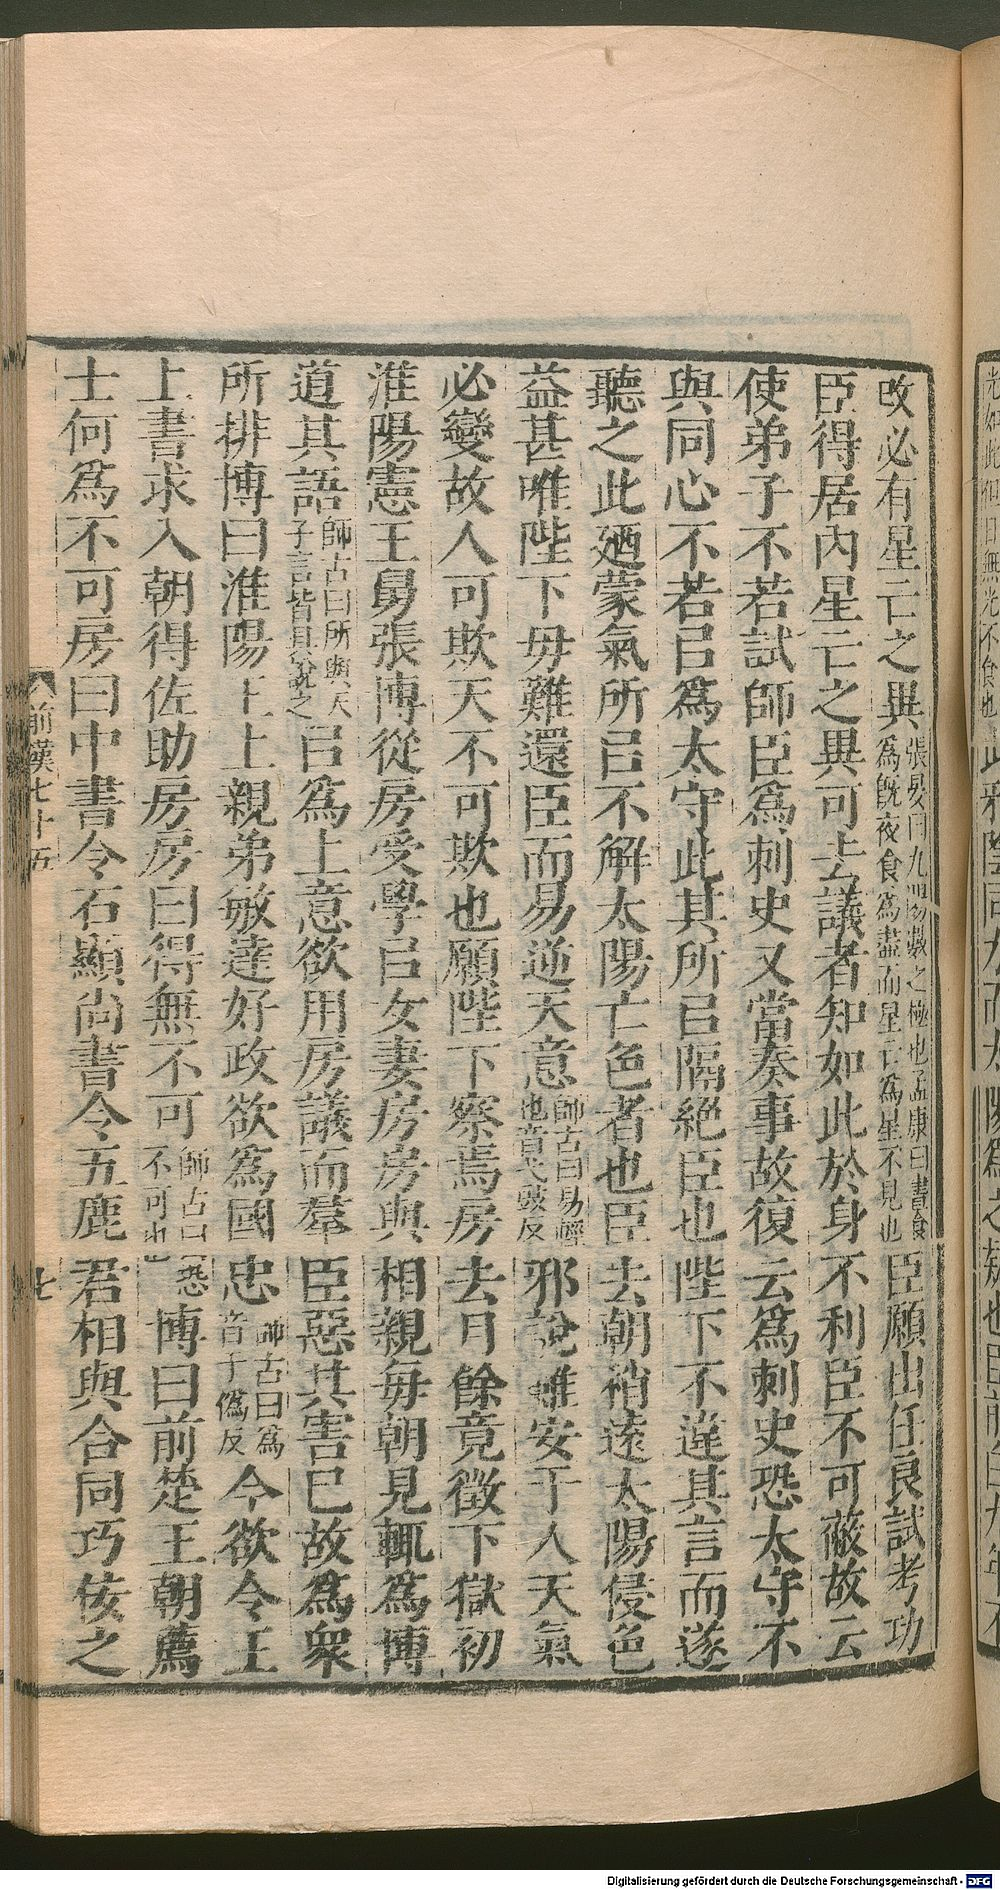 攺必有星亡之異張晏曰九陽數之極也孟康曰晝食爲旣夜食爲盡而星亡爲星不見也臣願出任良試考功
臣得居內星亡之異可去議者知如此於身不利臣不可蔽故云
使弟子不若試師臣爲刺史又當奏事故復云爲刺史恐太守不
與同心不若㠯爲太守此其所㠯隔絕臣也陛下不違其言而遂
聽之此廼蒙氣所㠯不解太陽亡色者也臣去朝稍遠太陽侵色
益甚唯陛下毋難還臣而易逆天意師古曰易輕也音弋豉反邪說雖安于人天氣
必變故人可欺天不可欺也願陛下察焉房去月餘竟徵下獄初
淮陽憲王舅張博從房受學㠯女妻房房與相親每朝見輒爲博
道其語師古曰所與天子言皆具說之㠯爲上意欲用房議而羣臣惡其害已故爲衆
所排博曰淮陽王上親弟敏達好政欲爲國忠師古曰爲音于僞反今欲令王
上書求入朝得佐助房房曰得無不可師古曰恐不可也博曰前楚王朝薦
士何爲不可房曰中書令石顯尚書令五鹿君相與合同巧佞之
前漢七十五
七
光如此但日無光不食也
Digitalisierung gefördert durch die Deutsche Forschungsgemeinschaft - DFG